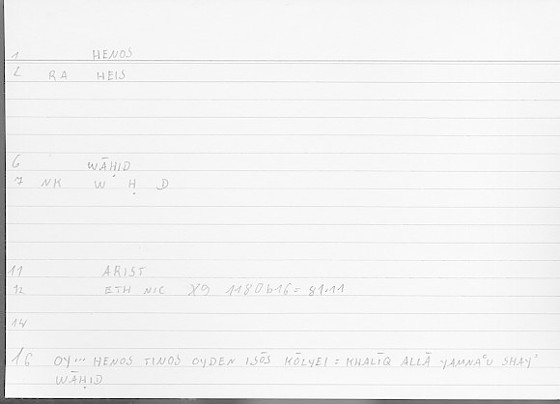 1 HENOS
2 RA HEIS
6 WĀḤID
7 NK W Ḥ D
11 ARIST
12 ETH NIC X9 1180b16 = 81.11
14
16 OY... HENOS TINOS OYDEN ISŌS KŌLYEI = KHALĪQ ALLĀ YAMNAʿU SHAYʾ
WĀḤID